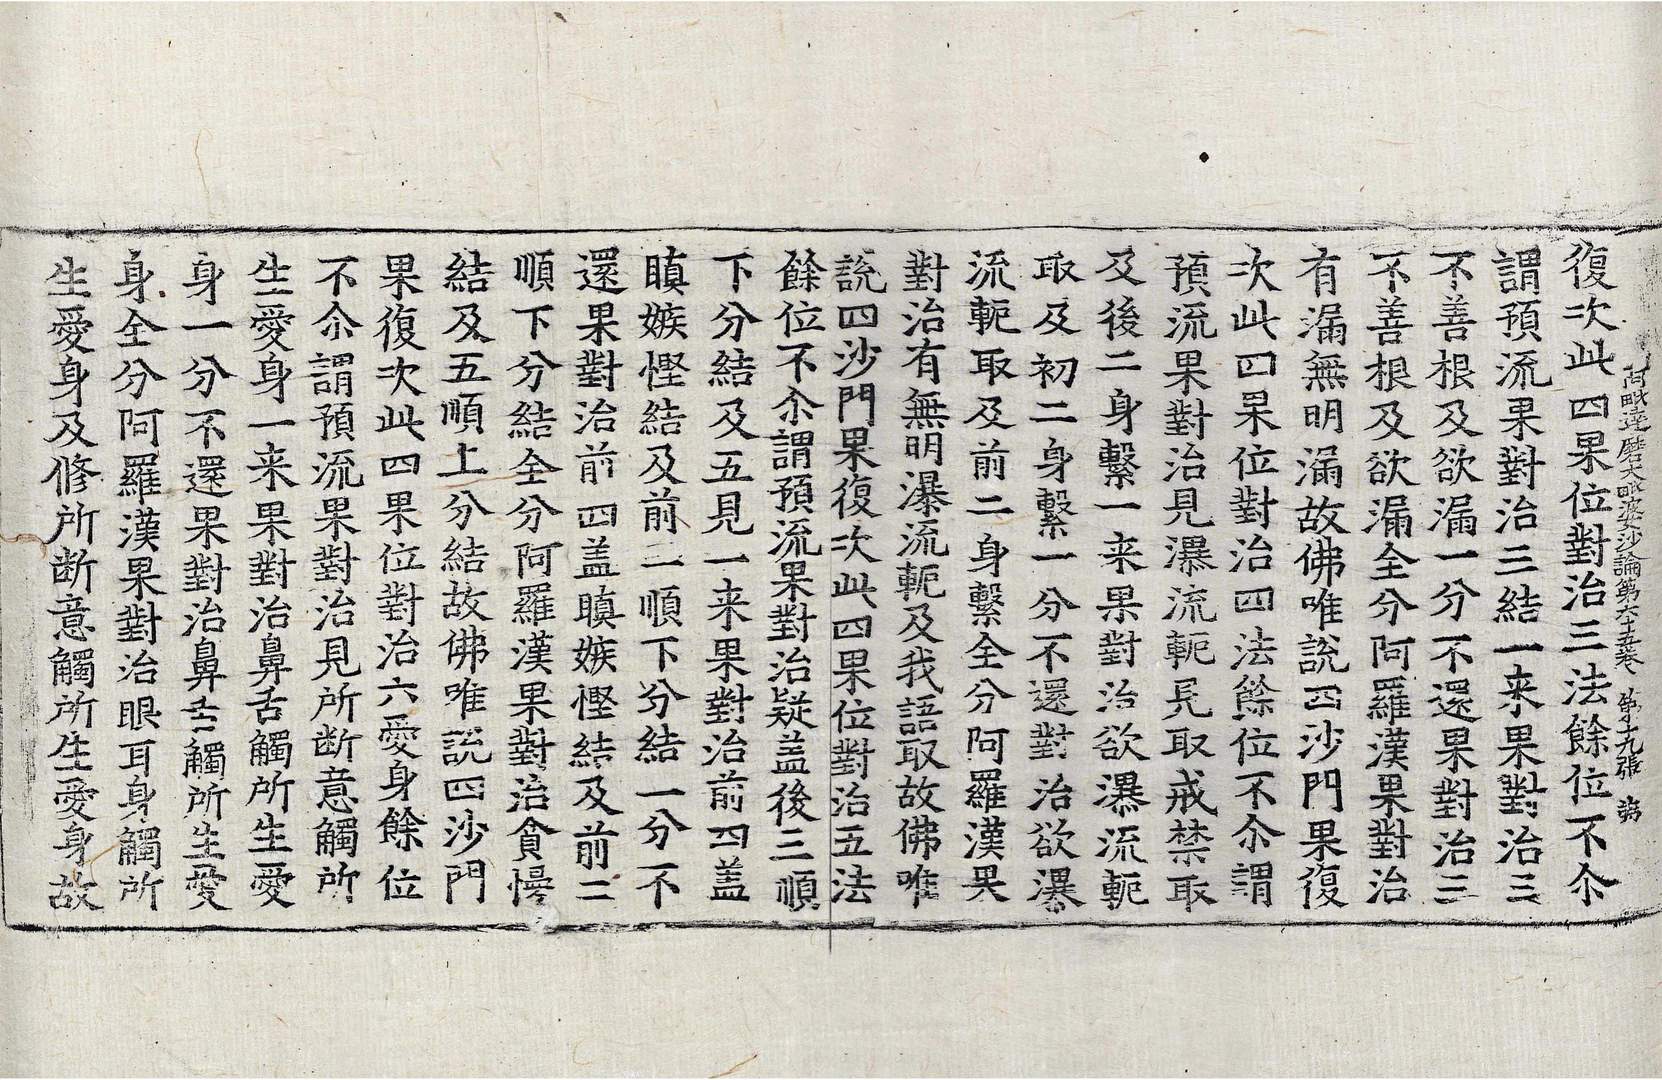 阿毗達磨大毗婆沙論第六十五卷 第十九張 弟
復次此四果位對治三法餘位不尒
謂預流果對治三結一来果對治三
不善根及欲漏一分不還果對治三
不善根及欲漏全分阿羅漢果對治
有漏無明漏故佛唯說四沙門果復
次此四果位對治四法餘位不尒謂
預流果對治見瀑流軛見取戒禁取
及後二身繫一来果對治欲瀑流軛
取及初二身繫一分不還對治欲瀑
流軛取及前二身繫全分阿羅漢果
對治有無明瀑流軛及我語取故佛唯
說四沙門果復次此四果位對治五法
餘位不尒謂預流果對治疑盖後三順
下分結及五見一来果對治前四盖
瞋嫉慳結及前二順下分結一分不
還果對治前四盖瞋嫉慳結及前二
順下分結全分阿羅漢果對治貪慢
結及五順上分結故佛唯說四沙門
果復次此四果位對治六愛身餘位
不尒謂預流果對治見所断意觸所
生愛身一来果對治鼻舌觸所生愛
身一分不還果對治鼻舌觸所生愛
身全分阿羅漢果對治眼耳身觸所
生愛身及修所断意觸所生愛身故